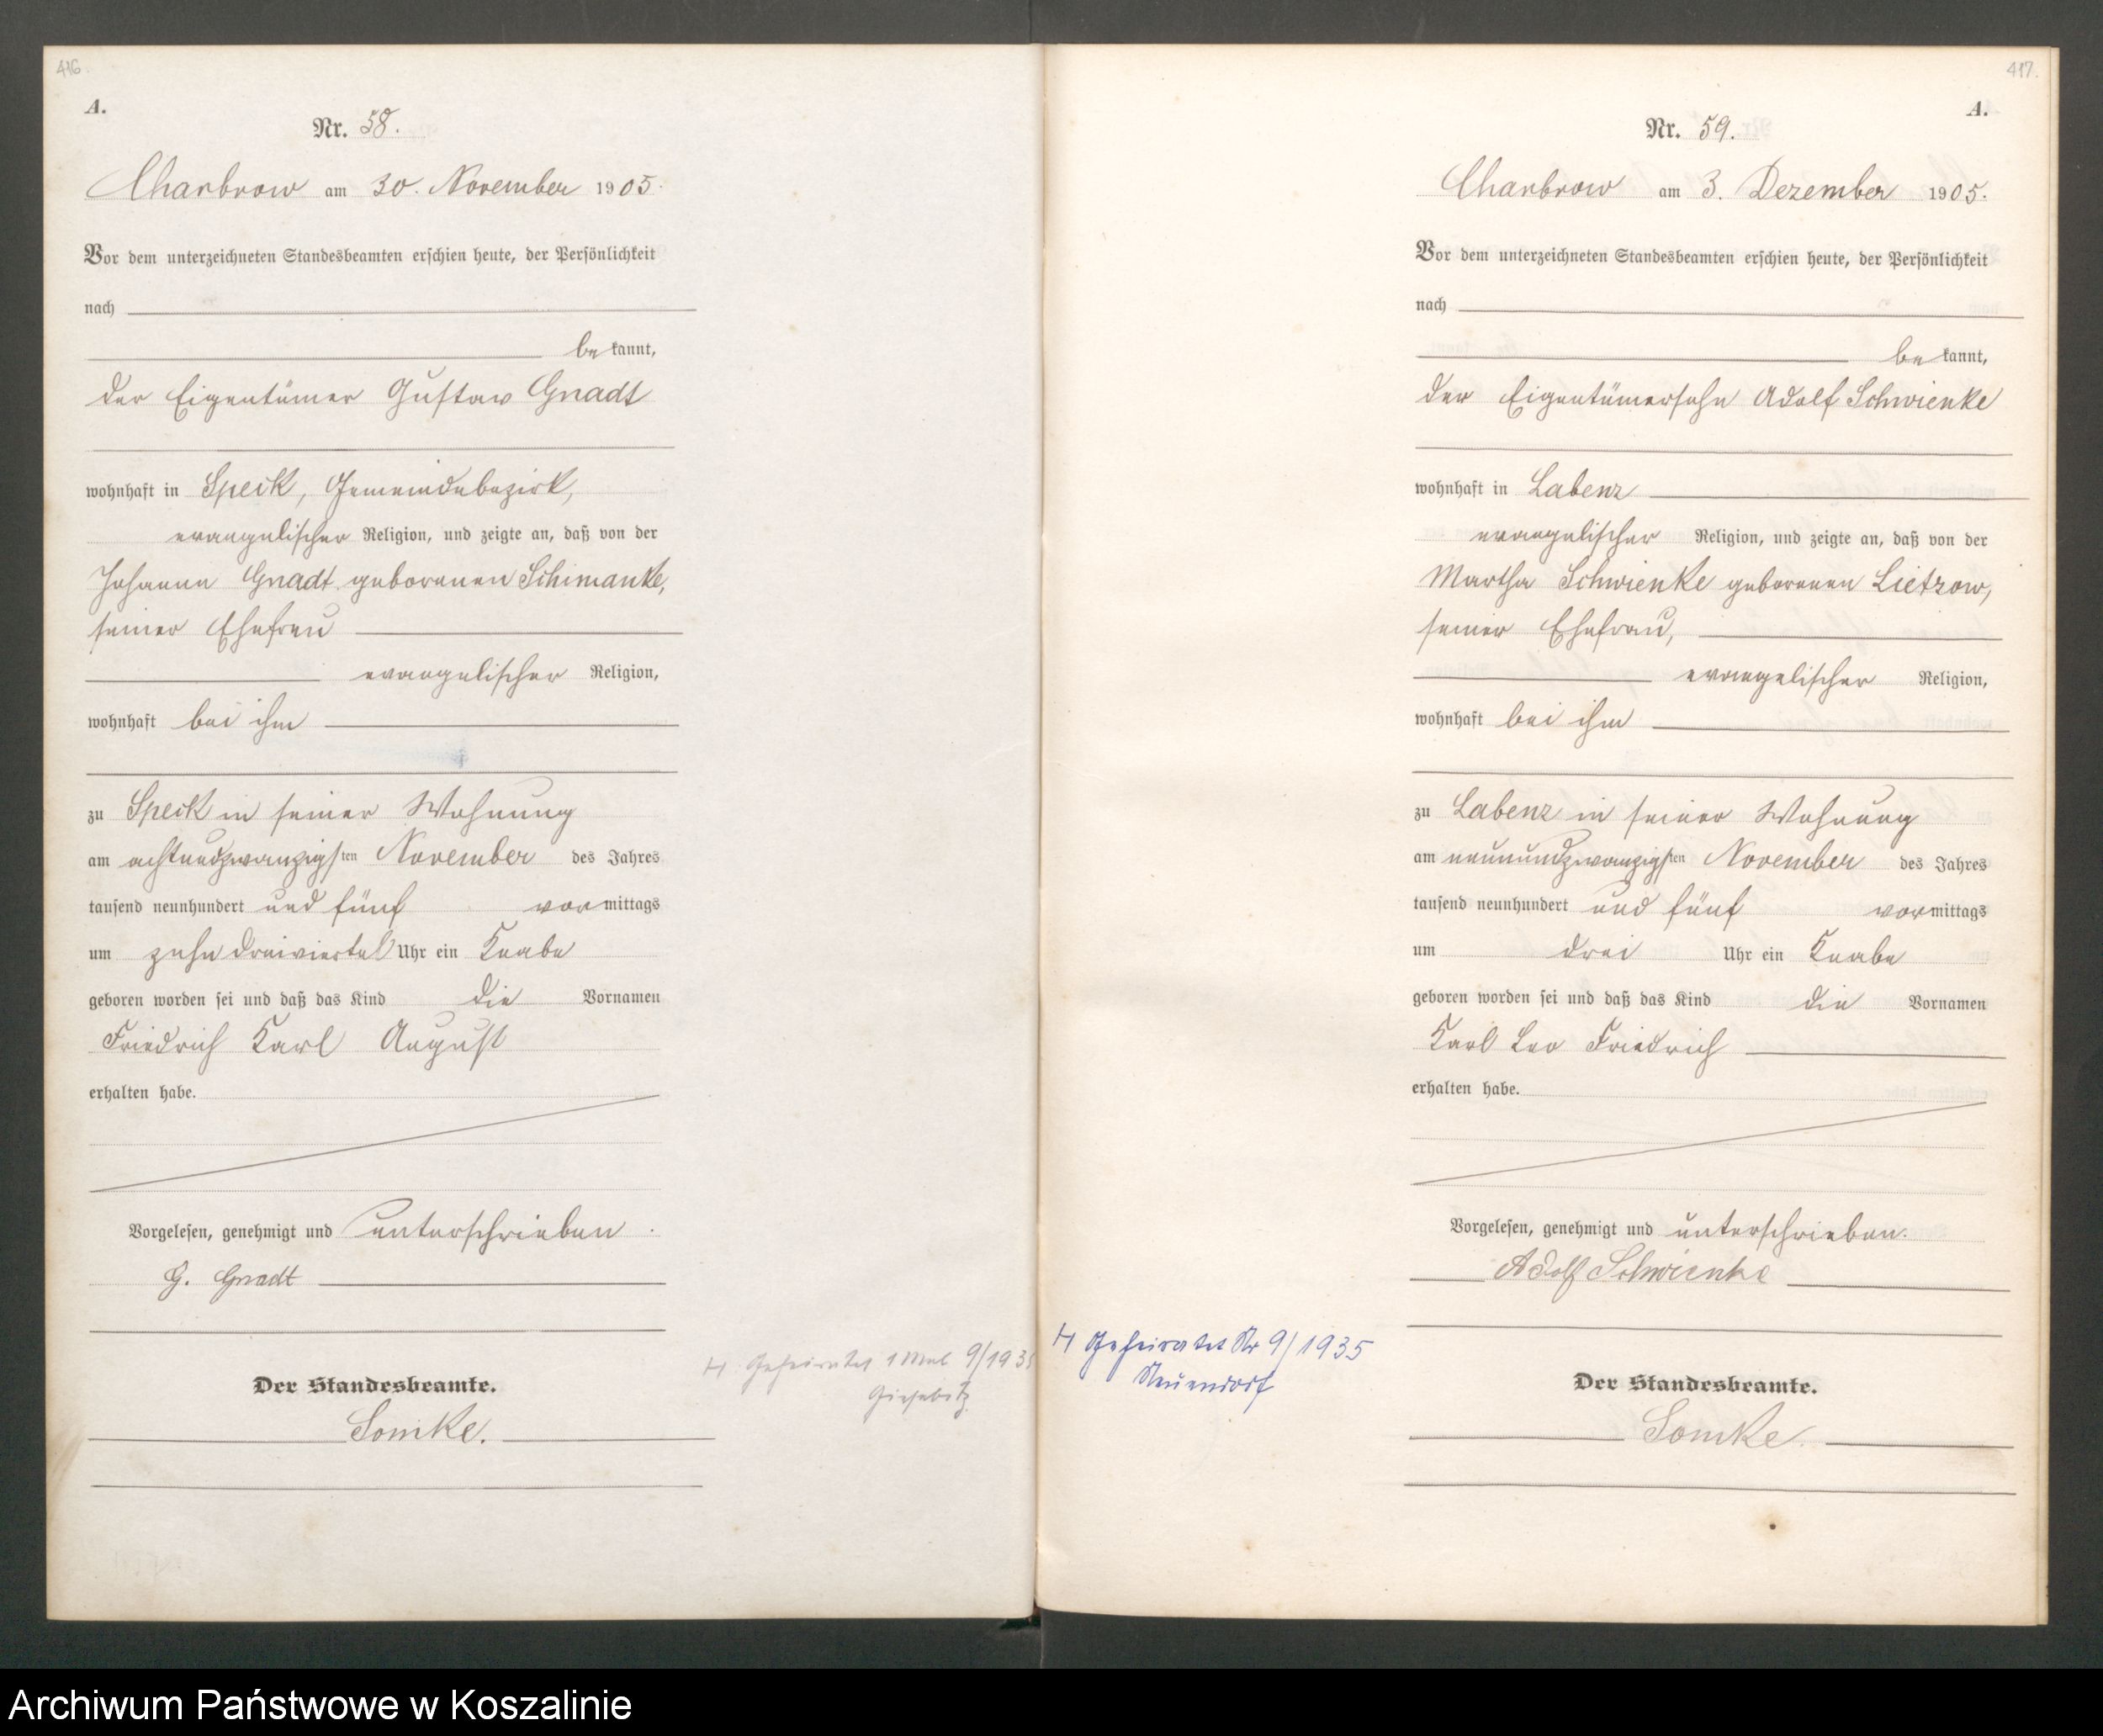 416.
A.
Nr. 58.
Charbrow am 30. November 1905.
Vor dem unterzeichneten Standesbeamten erschien heute, der Persönlichkeit
nach
be kannt,
der Eigentümer Gustav Gnadt
wohnhaft in Speck, Gemeindebezirk,
evangelischer Religion, und zeigte an, daß von der
Johanne Gnadt geborenen Schimanke,
seiner Ehefrau
evangelischer Religion,
wohnhaft bei ihm
zu Speck in seiner Wohnung
am achtundzwanzigsten November des Jahres
tausend neunhundert und fünf vormittags
um zehn dreiviertel Uhr ein Knabe
geboren worden sei und daß das Kind die Vornamen
Friedrich Karl August
erhalten habe.
Vorgelesen, genehmigt und unterschrieben.
G. Gnadt
H Geheiratet 1 Mal 9/193
Giesebitz
Der Standesbeamte.
Somke.
417.
A.
Nr. 59.
Charbrow am 3. Dezember 1905.
Vor dem unterzeichneten Standesbeamten erschien heute, der Persönlichkeit
nach
be kannt,
der Eigentümersohn Adolf Schwienke
wohnhaft in Labenz
evangelischer Religion, und zeigte an, daß von der
Martha Schwienke geborenen Lietzow,
seiner Ehefrau,
evangelischer Religion,
wohnhaft bei ihm
zu Labenz in seiner Wohnung
am neunundzwanzigsten November des Jahres
tausend neunhundert und fünf vormittags
um drei Uhr ein Knabe
geboren worden sei und daß das Kind die Vornamen
Karl Leo Friedrich
erhalten habe.
Vorgelesen, genehmigt und unterschrieben.
Adolf Schwienke
H Geheiratet Nr 9/1935
Neuendorf
Der Standesbeamte.
Somke.
Archiwum Państwowe w Koszalinie